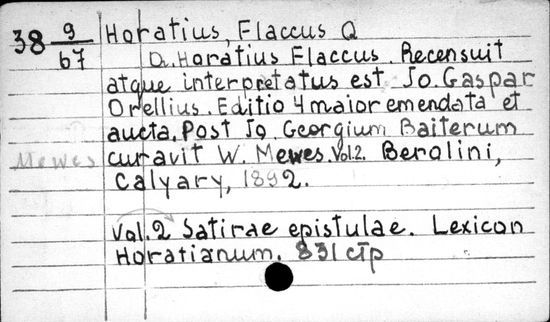 38 9/67 Horatius, Flaccus Q
Q. Horatius Flaccus. Recensuit
atque interpretatus est Jo. Gaspar
Orellius. Editio 4 maior emendata et
aucta. Post Jo. Georgium Baiterum
Mewes curavit W. Mewes. Vol.2. Berolini,
Calvary, 1892.
Vol. 2 Satirae epistulae. Lexicon
Horatianum. 831 стр